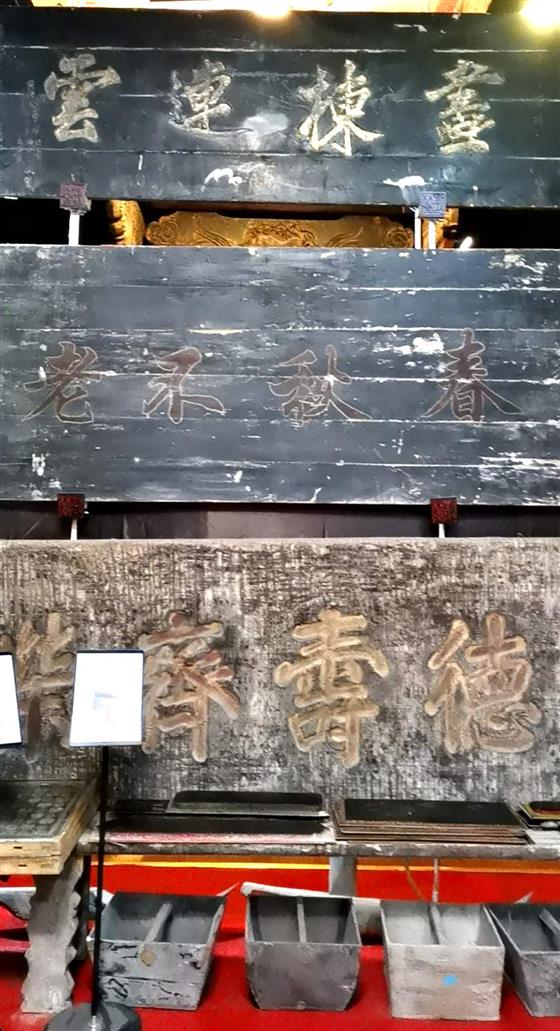 畫棟連雲
春秋不老
德壽齊